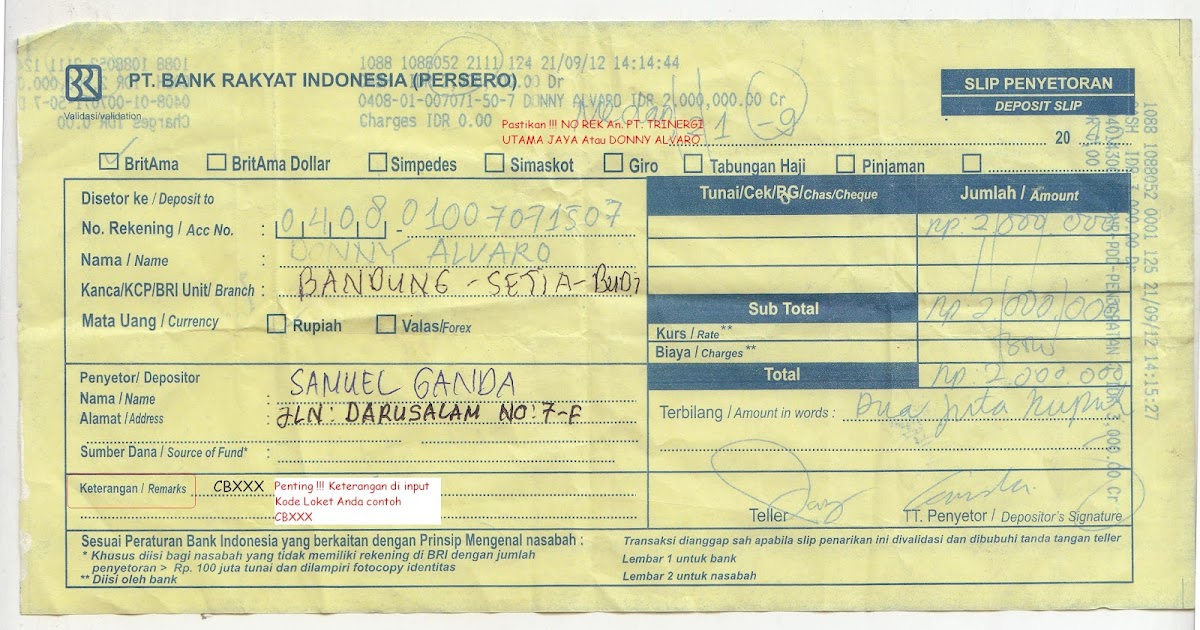 1088 1088052 2111 124 21/09/12 14:14:44
PT. BANK RAKYAT INDONESIA (PERSERO)
.00 Dr
0408-01-007071-50-7 DONNY ALVARO IDR 2,000,000.00 Cr
Charges IDR 0.00
Validasi/validation
SLIP PENYETORAN
DEPOSIT SLIP
Medan 21 - 9
20
Pastikan !!! NO REK An. PT. TRINERGI
UTAMA JAYA Atau DONNY ALVARO
BritAma BritAma Dollar Simpedes Simaskot Giro Tabungan Haji Pinjaman
Disetor ke / Deposit to
No. Rekening / Acc No. : 0408-01007071507
Nama / Name : DONNY ALVARO
Kanca/KCP/BRI Unit/ Branch : BANDUNG - SETIA - BUDI
Mata Uang / Currency : Rupiah Valas/Forex
Tunai/Cek/BG/Chas/Cheque Jumlah / Amount
Rp. 2,000.000
Sub Total Rp 2,000,000
Kurs / Rate **
Biaya / Charges **
Total Rp. 2.000.000
Terbilang / Amount in words : Dua juta rupiah
Penyetor/ Depositor
Nama / Name : SAMUEL GANDA
Alamat / Address : JLN: DARUSALAM NO: 7-F
Sumber Dana / Source of Fund* :
Keterangan / Remarks CBXXX
Penting !!! Keterangan di input
Kode Loket Anda contoh
CBXXX
Teller TT. Penyetor / Depositor's Signature
Sesuai Peraturan Bank Indonesia yang berkaitan dengan Prinsip Mengenal nasabah :
* Khusus diisi bagi nasabah yang tidak memiliki rekening di BRI dengan jumlah
penyetoran > Rp. 100 juta tunai dan dilampiri fotocopy identitas
** Diisi oleh bank
Transaksi dianggap sah apabila slip penarikan ini divalidasi dan dibubuhi tanda tangan teller
Lembar 1 untuk bank
Lembar 2 untuk nasabah
1088 1088052 0001 125 21/09/12 14:15:27